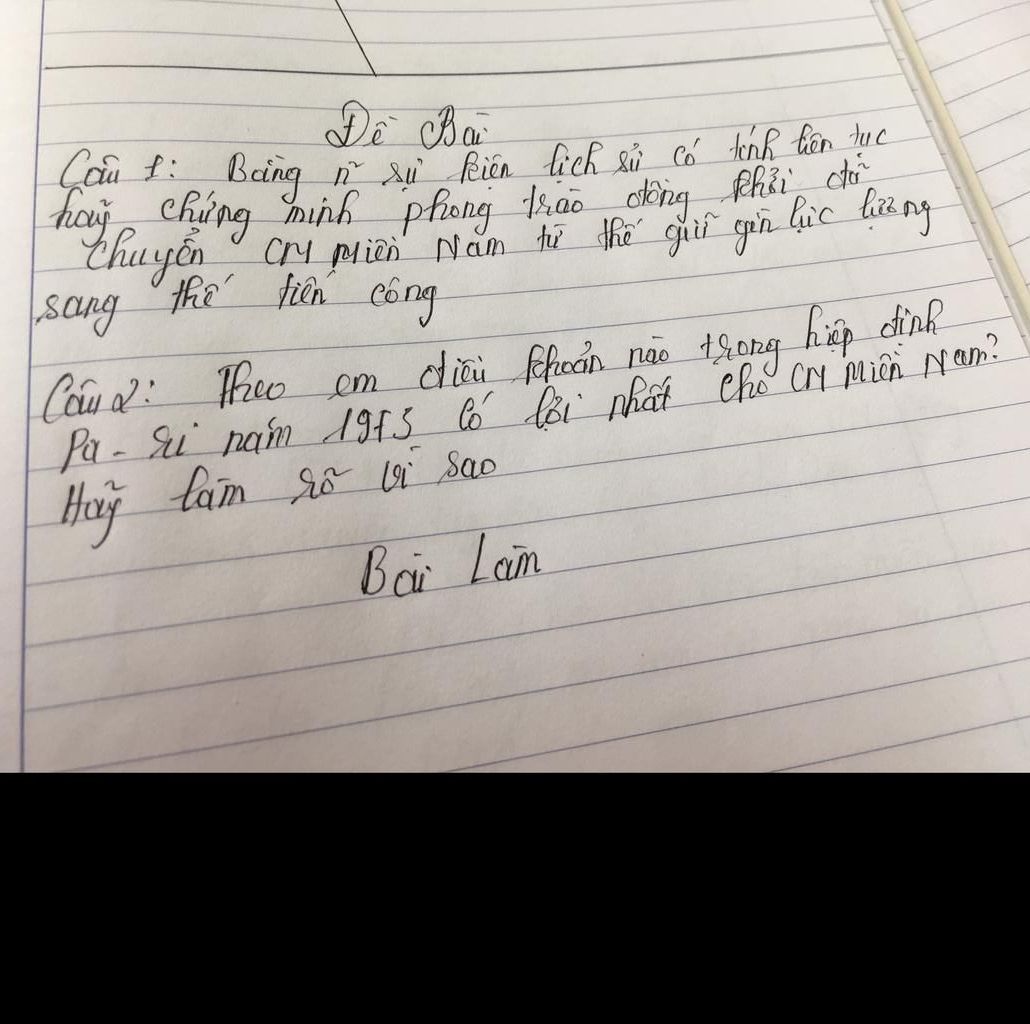 Đề Bài
Câu 1: Bằng n~ sự kiện lịch sử có tính liên tục
hãy chứng minh phong trào đồng khởi đã
chuyển CM Miền Nam từ thế giữ gìn lực lượng
sang thế tiến công
Câu 2: Theo em điều khoản nào trong hiệp định
Pa-ri năm 1973 có lợi nhất cho CM Miền Nam?
Hãy làm rõ vì sao
Bài Làm